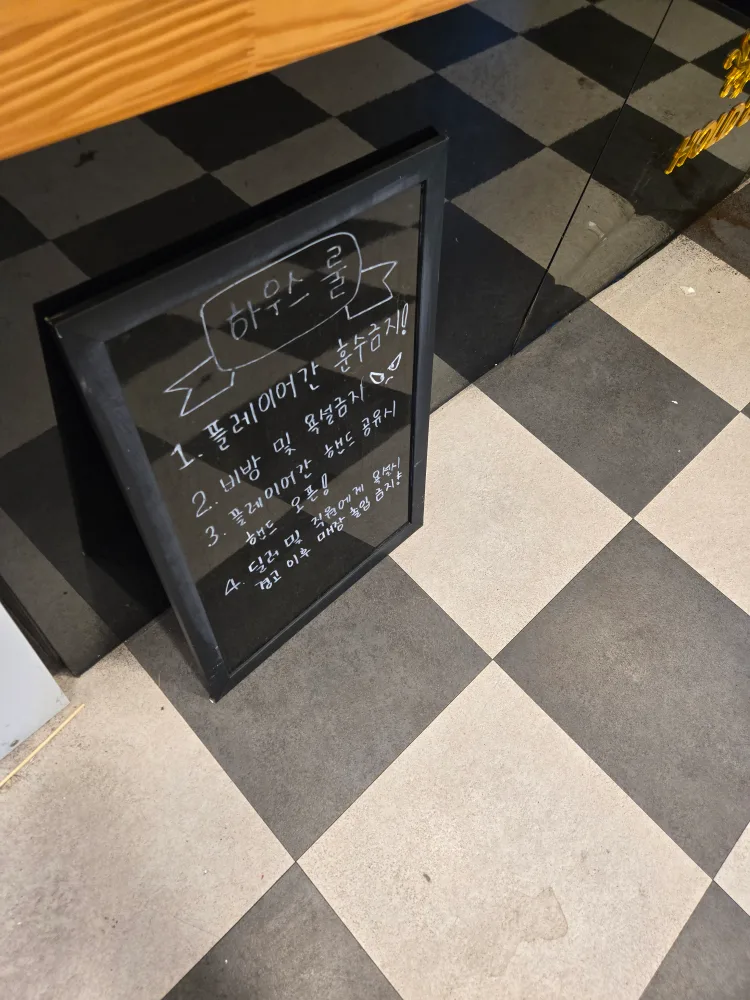 하우스 룰
1. 플레이어간 훈수금지!
2. 비방 및 욕설금지
3. 플레이어간 핸드 공유시
핸드 오픈!
4. 딜러 및 직원에게 욕설시
경고 이후 매장 출입 금지!